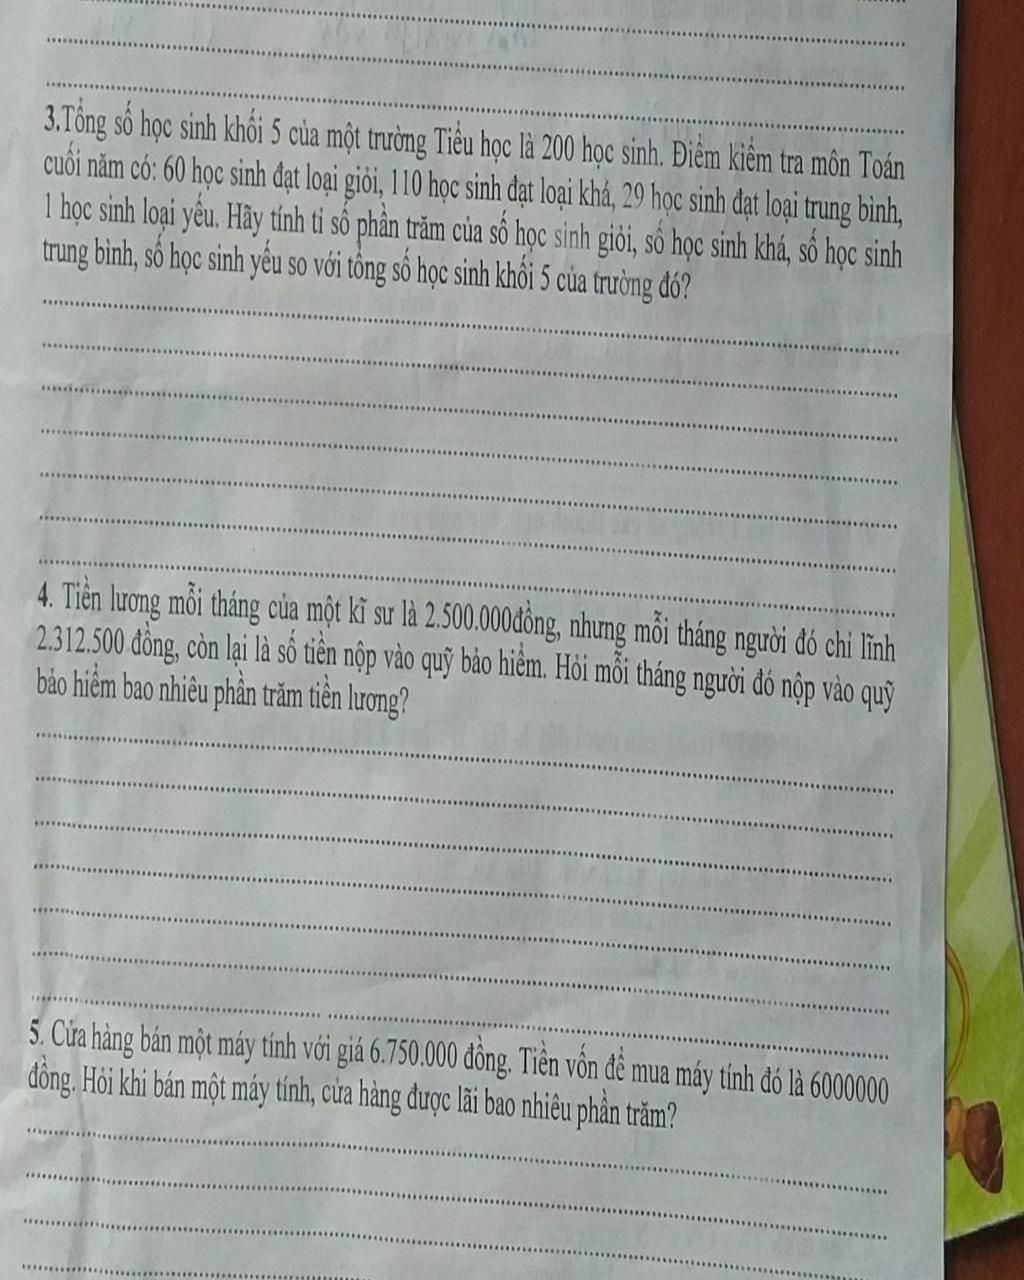 3.Tổng số học sinh khối 5 của một trường Tiểu học là 200 học sinh. Điểm kiểm tra môn Toán
cuối năm có: 60 học sinh đạt loại giỏi, 110 học sinh đạt loại khá, 29 học sinh đạt loại trung bình,
1 học sinh loại yếu. Hãy tính tỉ số phần trăm của số học sinh giỏi, số học sinh khá, số học sinh
trung bình, số học sinh yếu so với tổng số học sinh khối 5 của trường đó?
4. Tiền lương mỗi tháng của một kĩ sư là 2.500.000đồng, nhưng mỗi tháng người đó chỉ lĩnh
2.312.500 đồng, còn lại là số tiền nộp vào quỹ bảo hiểm. Hỏi mỗi tháng người đó nộp vào quỹ
bảo hiểm bao nhiêu phần trăm tiền lương?
5. Cửa hàng bán một máy tính với giá 6.750.000 đồng. Tiền vốn để mua máy tính đó là 6000000
đồng. Hỏi khi bán một máy tính, cửa hàng được lãi bao nhiêu phần trăm?